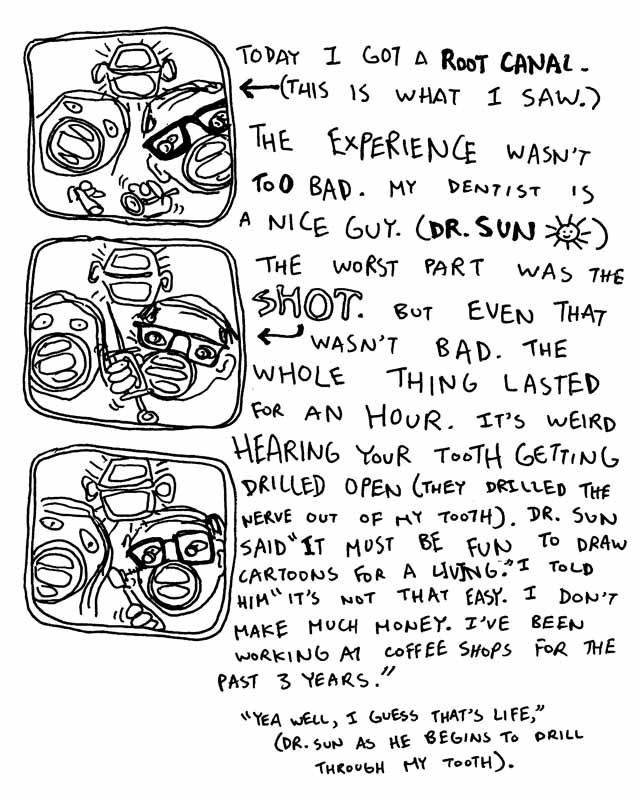 TODAY I GOT A ROOT CANAL.
(THIS IS WHAT I SAW.)
THE EXPERIENCE WASN'T
TOO BAD. MY DENTIST IS
A NICE GUY. (DR. SUN )
THE WORST PART WAS THE
SHOT. BUT EVEN THAT
WASN'T BAD. THE
WHOLE THING LASTED
FOR AN HOUR. IT'S WEIRD
HEARING YOUR TOOTH GETTING
DRILLED OPEN (THEY DRILLED THE
NERVE OUT OF MY TOOTH). DR. SUN
SAID "IT MUST BE FUN TO DRAW
CARTOONS FOR A LIVING." I TOLD
HIM "IT'S NOT THAT EASY. I DON'T
MAKE MUCH MONEY. I'VE BEEN
WORKING AT COFFEE SHOPS FOR THE
PAST 3 YEARS."
"YEA WELL, I GUESS THAT'S LIFE,"
(DR. SUN AS HE BEGINS TO DRILL
THROUGH MY TOOTH).